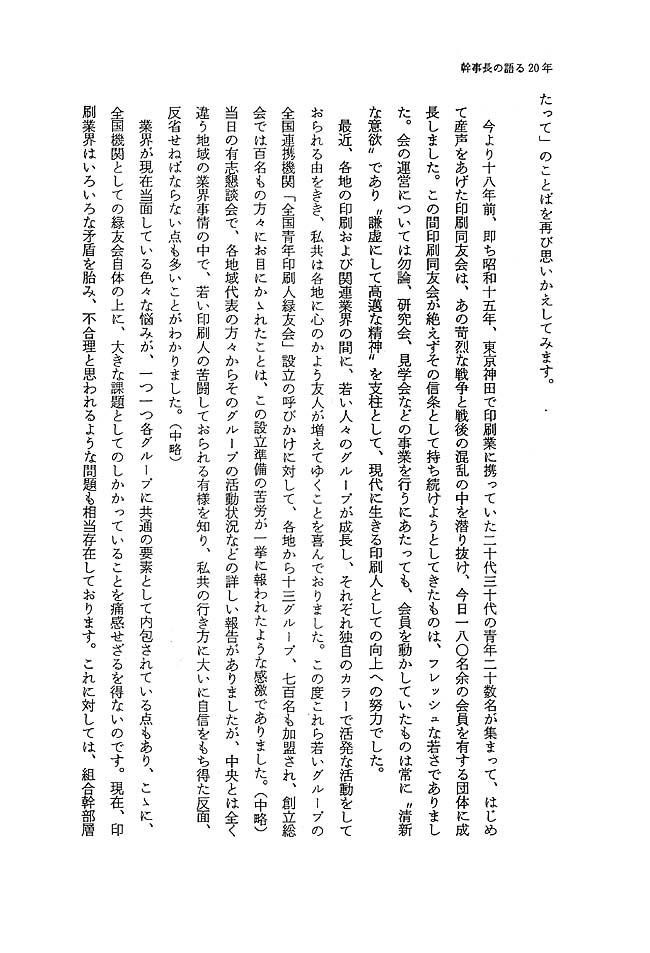 幹事長の語る20年
たって」のことばを再び思いかえしてみます。
今より十八年前、即ち昭和十五年、東京神田で印刷業に携っていた二十代三十代の青年二十数名が集まって、はじめ
て産声をあげた印刷同友会は、あの苛烈な戦争と戦後の混乱の中を潜り抜け、今日一八〇名余の会員を有する団体に成
長しました。この間印刷同友会が絶えずその信条として持ち続けようとしてきたものは、フレッシュな若さでありまし
た。会の運営については勿論、研究会、見学会などの事業を行うにあたっても、会員を動かしていたものは常に〝清新
な意欲〟であり〝謙虚にして高邁な精神〟を支柱として、現代に生きる印刷人としての向上への努力でした。
最近、各地の印刷および関連業界の間に、若い人々のグループが成長し、それぞれ独自のカラーで活発な活動をして
おられる由をきき、私共は各地に心のかよう友人が増えてゆくことを喜んでおりました。この度これら若いグループの
全国連携機関「全国青年印刷人緑友会」設立の呼びかけに対して、各地から十三グループ、七百名も加盟され、創立総
会では百名もの方々にお目にかゝれたことは、この設立準備の苦労が一挙に報われたような感激でありました。(中略)
当日の有志懇談会で、各地域代表の方々からそのグループの活動状況などの詳しい報告がありましたが、中央とは全く
違う地域の業界事情の中で、若い印刷人の苦闘しておられる有様を知り、私共の行き方に大いに自信をもち得た反面、
反省せねばならない点も多いことがわかりました。(中略)
業界が現在当面している色々な悩みが、一つ一つ各グループに共通の要素として内包されている点もあり、こゝに、
全国機関としての緑友会自体の上に、大きな課題としてのしかかっていることを痛感せざるを得ないのです。現在、印
刷業界はいろいろな矛盾を胎み、不合理と思われるような問題も相当存在しております。これに対しては、組合幹部層